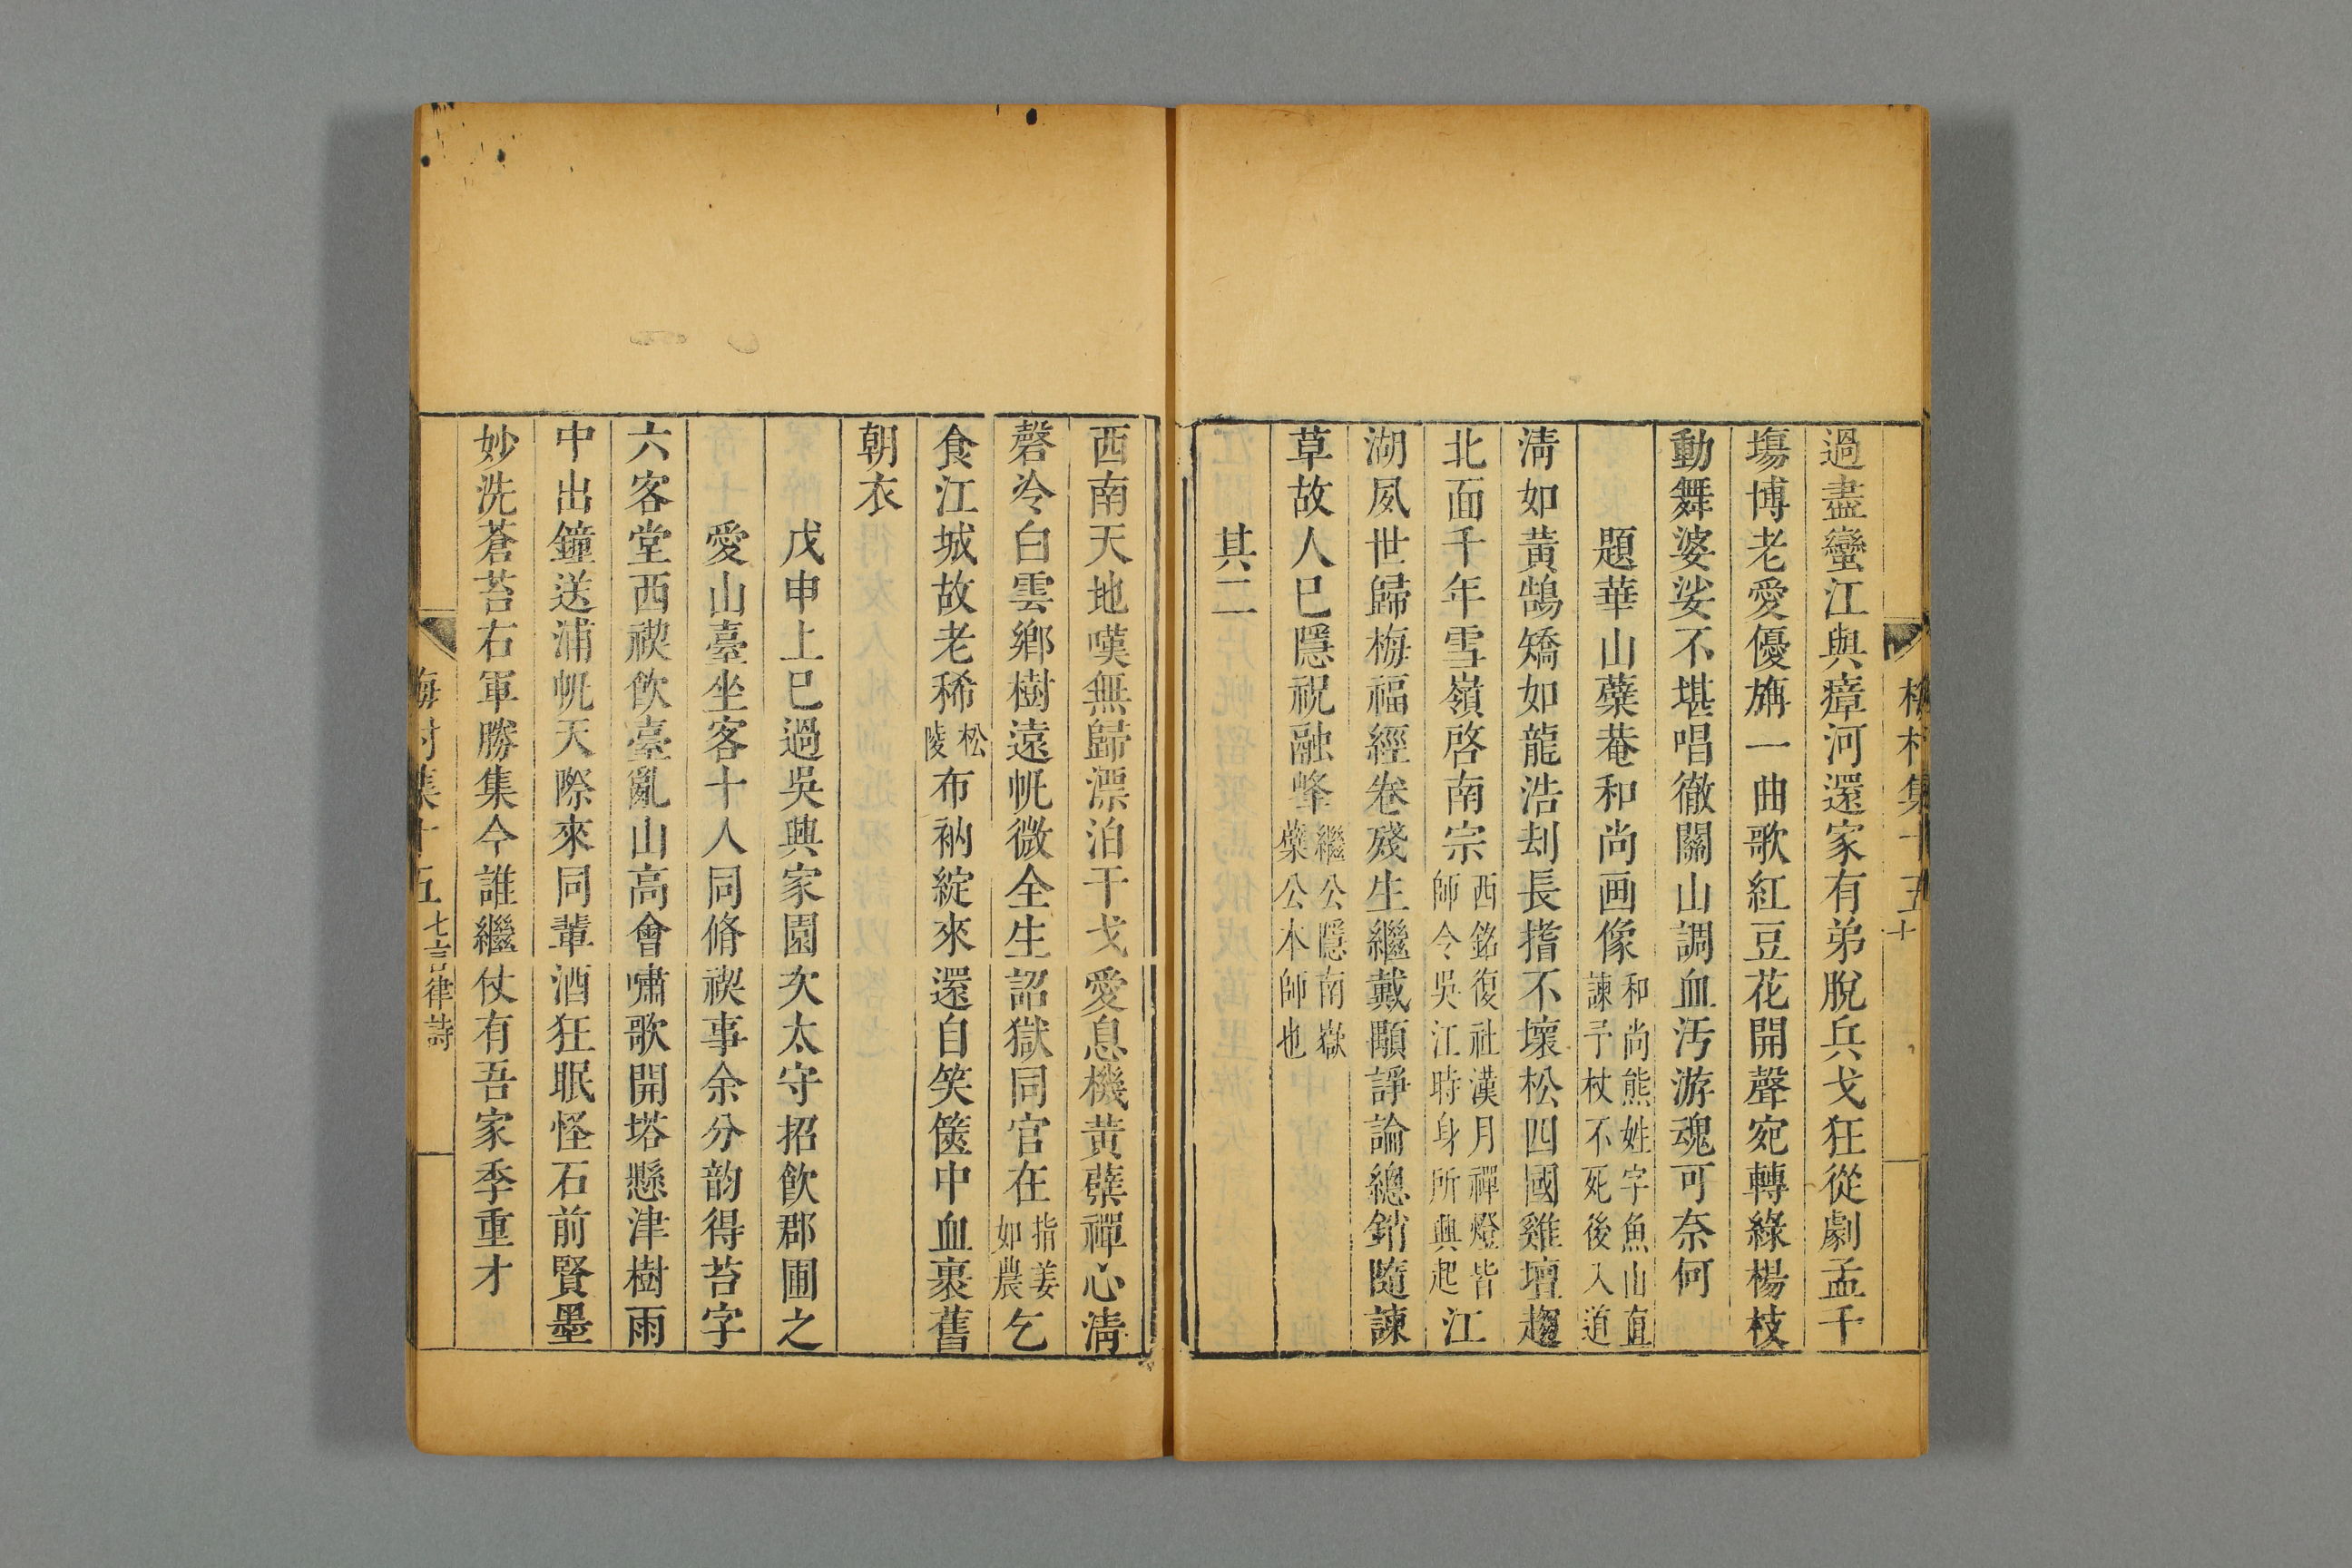 過盡蠻江與瘴河還家有弟脫兵戈狂從劇孟千
塲博老愛優旃一曲歌紅豆花開聲宛轉綠楊枝
動舞婆娑不堪唱徹關山調血汚游魂可奈何
題華山蘗菴和尚画像和尚熊姓字魚山直諫予杖不死後入道
淸如黃鵠矯如龍浩刼長指不壞松四國雞壇趨
北面千年雪嶺啓南宗西銘復社漢月禪燈皆師今吳江時身所興起江
湖夙世歸梅福經卷殘生繼戴顒諍論總銷隨諫
草故人已隱祝融峰繼公隱南嶽蘗公本師也
其二
西南天地嘆無歸漂泊干戈愛息機黃蘗禪心淸
磬冷白雲鄉樹遠帆微全生詔獄同官在指姜如農乞
食江城故老稀松陵布衲綻來還自笑篋中血裹舊
朝衣
戊申上巳過吳興家園次太守招飮郡圃之
愛山臺坐客十人同脩禊事余分韵得苔字
六客堂西禊飮臺亂山高會嘯歌開塔懸津樹雨
中出鐘送浦帆天際來同輩酒狂眠怪石前賢墨
妙洗蒼苔右軍勝集今誰繼仗有吾家季重才
梅村集十五 七言律詩